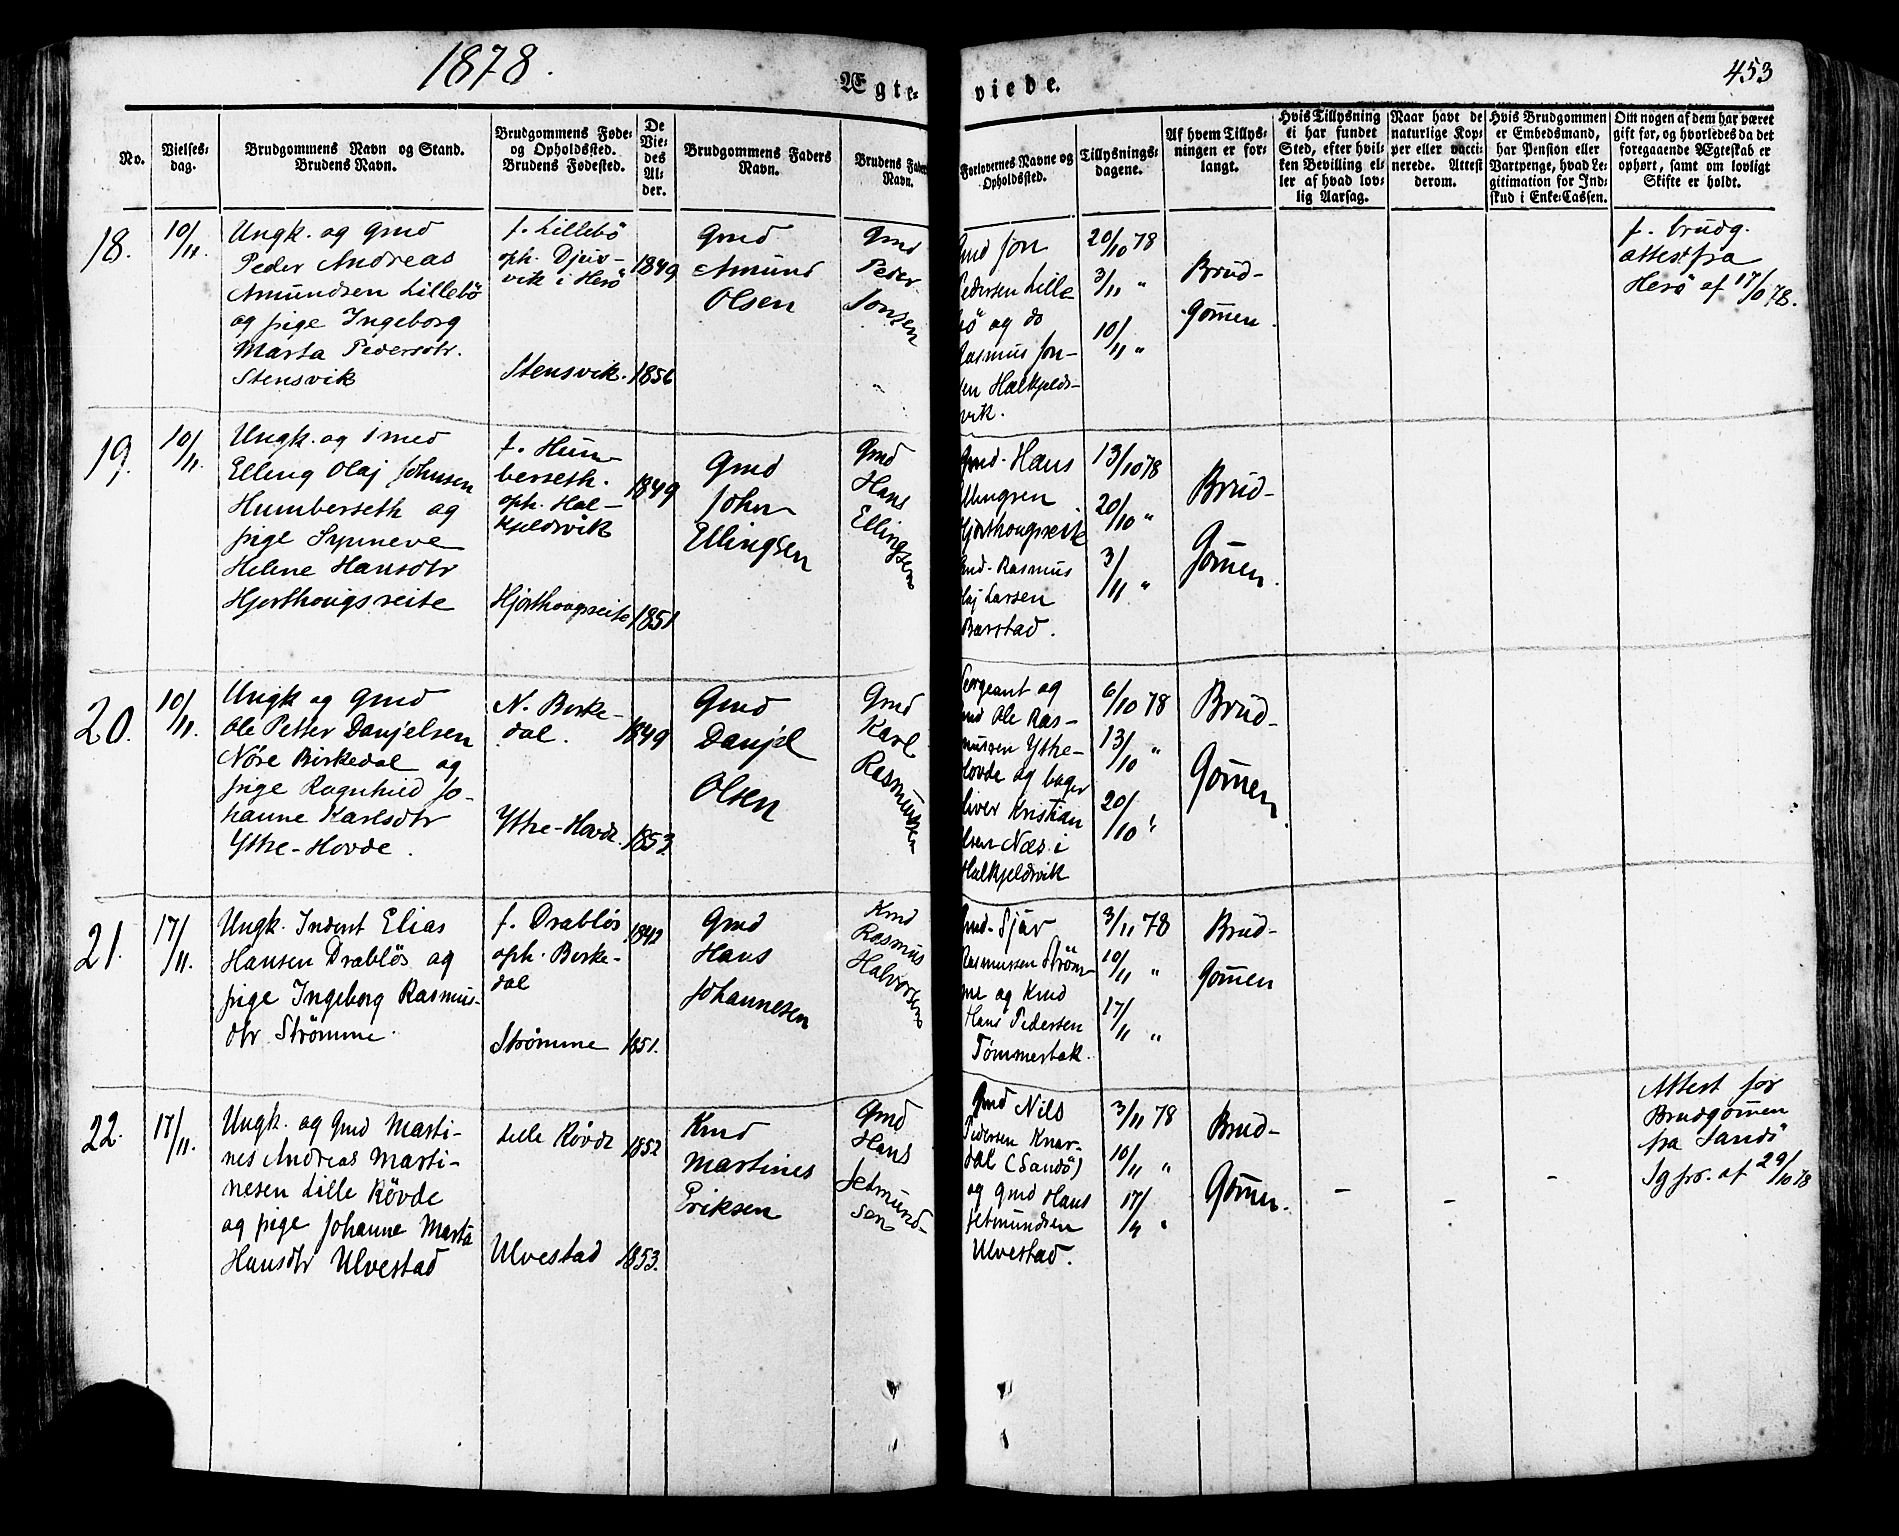 1878.
453
Ægte-
viede.
No.
Vielses-
dag.
Brudgommens Navn og Stand.
Brudens Navn.
Brudgommens Føde-
og Opholdssted.
Brudens Fødested.
De
Vie-
des
Al-
der.
Brudgommens Faders
Navn.
Brudens Faders
Navn.
Forlovernes Navne og
Opholdssted.
Tillysnings-
dagene.
Af hvem Tillys-
ningen er for-
langt.
Hvis Tillysning
ei har fundet
Sted, efter hvil-
ken Bevilling el-
ler af hvad lov-
lig Aarsag.
Naar havt de
naturlige Kop-
per eller vacci-
nerede. Attest
derom.
Hvis Brudgommen
er Embedsmand,
har Pension eller
Vartpenge, hvad Le-
gitimation for Ind-
skud i Enke-Cassen.
Om nogen af dem har været
gift før, og hvorledes da det
foregaaende Ægteskab er
ophørt, samt om lovligt
Skifte er holdt.
18.
10/11.
Ungk. og Gmd
Peder Andreas
Amundsen Lillebö
og pige Ingeborg
Marta Pedersdtr.
Stensvik
f. Lillebö
oph. Djup-
vik i Herö
Stensvik.
1849
1856
Gmd
Amund
Olsen
Gmd
Peder
Jonsen
Gmd Jon
Pedersen Lille
bö og do
Rasmus Jon-
sen Halkjelds-
vik.
20/10 78
3/11 "
10/11 "
Brud-
Gom̄en.
f. brudg.
attest fra
Herö af 17/10 78.
19.
10/11.
Ungk. og Smed
Elling Olaj Johnsen
Humberseth og
pige Synneve
Helene Hansdtr
Hjorthougsreite
f. Hum-
berseth.
oph. Hal-
kjeldsvik
Hjorthougsreite
1849
1851
Gmd
John
Ellingsen
Gmd
Hans
Ellingsen
Gmd. Hans
Ellingsen
Hjorthougsreite
Gmd. Rasmus
Olaj Larsen
Barstad.
13/10 78
20/10 "
3/11 "
Brud-
Gom̄en.
20.
10/11.
Ungk og Gmd
Ole Petter Danjelsen
Nöre Birkedal og
pige Ragnhild Jo-
hanne Karlsdtr
Ytre-Hovde.
N. Birke-
dal.
Ytre-Hovde.
1849
1853.
Gmd
Danjel
Olsen
Gmd
Karl
Rasmussen
Sergeant og
Gmd Ole Ras-
mussen Ythe-
Hovde og bager
Oliver Kristian
Olsen Næs i
Halkjeldsvik
6/10 78
13/10 "
20/10 "
Brud-
Gom̄en.
21.
17/11.
Ungk. Inderst Elias
Hansen Drablös og
pige Ingeborg Rasmus-
dtr Strömme.
f. Drablös
oph. Birke-
dal
Strömme
1842
1851.
Gmd
Hans
Johannesen
Kmd
Rasmus
Halvorsen
Gmd. Sjur
Rasmussen Ström-
me og Kmd
Hans Pedersen
Tömmerbak.
3/11 78
10/11 "
17/11 "
Brud-
Gom̄en
22.
17/11.
Ungk. og Gmd Marti-
nes Andreas Marti-
nesen Lille Rövde
og pige Johanne Marta
Hansdtr Ulvestad
Lille Rövde
Ulvestad
1852
1853.
Kmd
Martines
Eriksen
Gmd
Hans
Jetmund-
sen
Gmd Nils
Pedersen Knar-
dal (Sandö)
og Gmd Hans
Jetmundsen
Ulvestad.
3/11 78
10/11 "
17/11 "
Brud-
Gom̄en.
–
–
–
Attest for
Brudgom̄en
fra Sandö
Sgpr. af 29/10 78